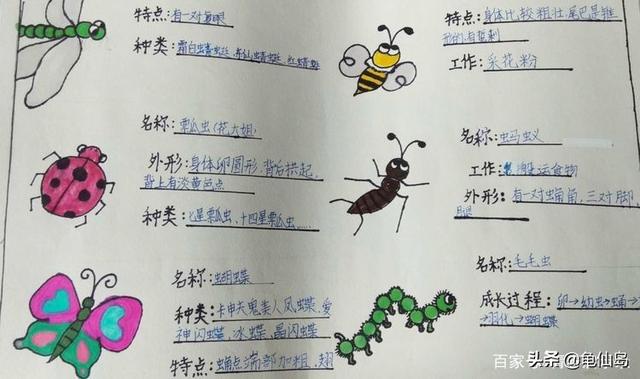 特点:有一对复眼
种类:霜白蜻蜓
特点:身体比较粗壮,尾巴是锥
形的,有蜇刺
工作:采花粉
名称:瓢虫(花大姐)
外形:身体卵圆形,背后拱起,
背上有淡黄色点
种类:七星瓢虫、十四星瓢虫……
名称:虫马虫义
工作:搬运食物
外形:有一对触角,三对脚,
腿
名称:蝴蝶
种类:卡申夫鬼美人凤蝶、爱
神闪蝶、冰蝶、晶闪蝶
特点:端部加粗,翅
名称:毛毛虫
成长过程:卵→幼虫→蛹→
→羽化→蝴蝶
百家
头条@龟仙岛